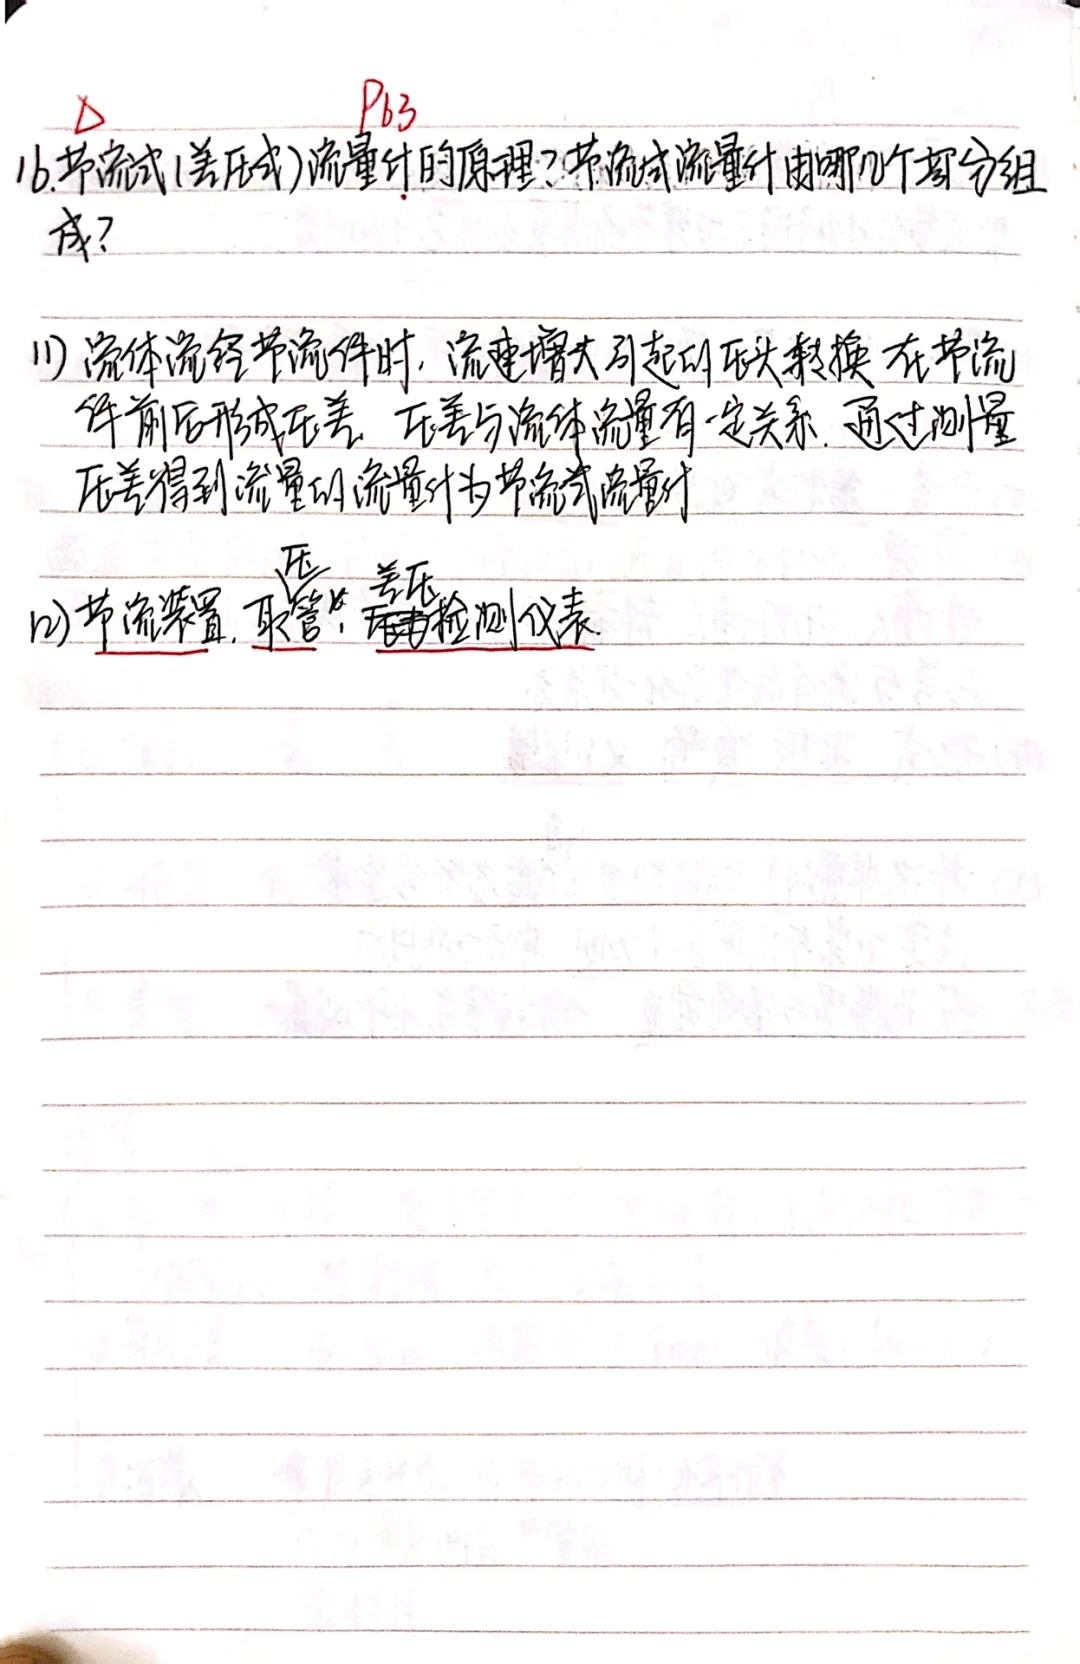 △ P63
16.节流式(差压式)流量计的原理?节流式流量计由哪几个部分组
成?
(1) 流体流经节流件时,流速增大引起的压头转换 在节流
件前后形成压差 压差与流体流量有一定关系.通过测量
压差得到流量的流量计为节流式流量计
压 差压
(2) 节流装置.取管.检测仪表.